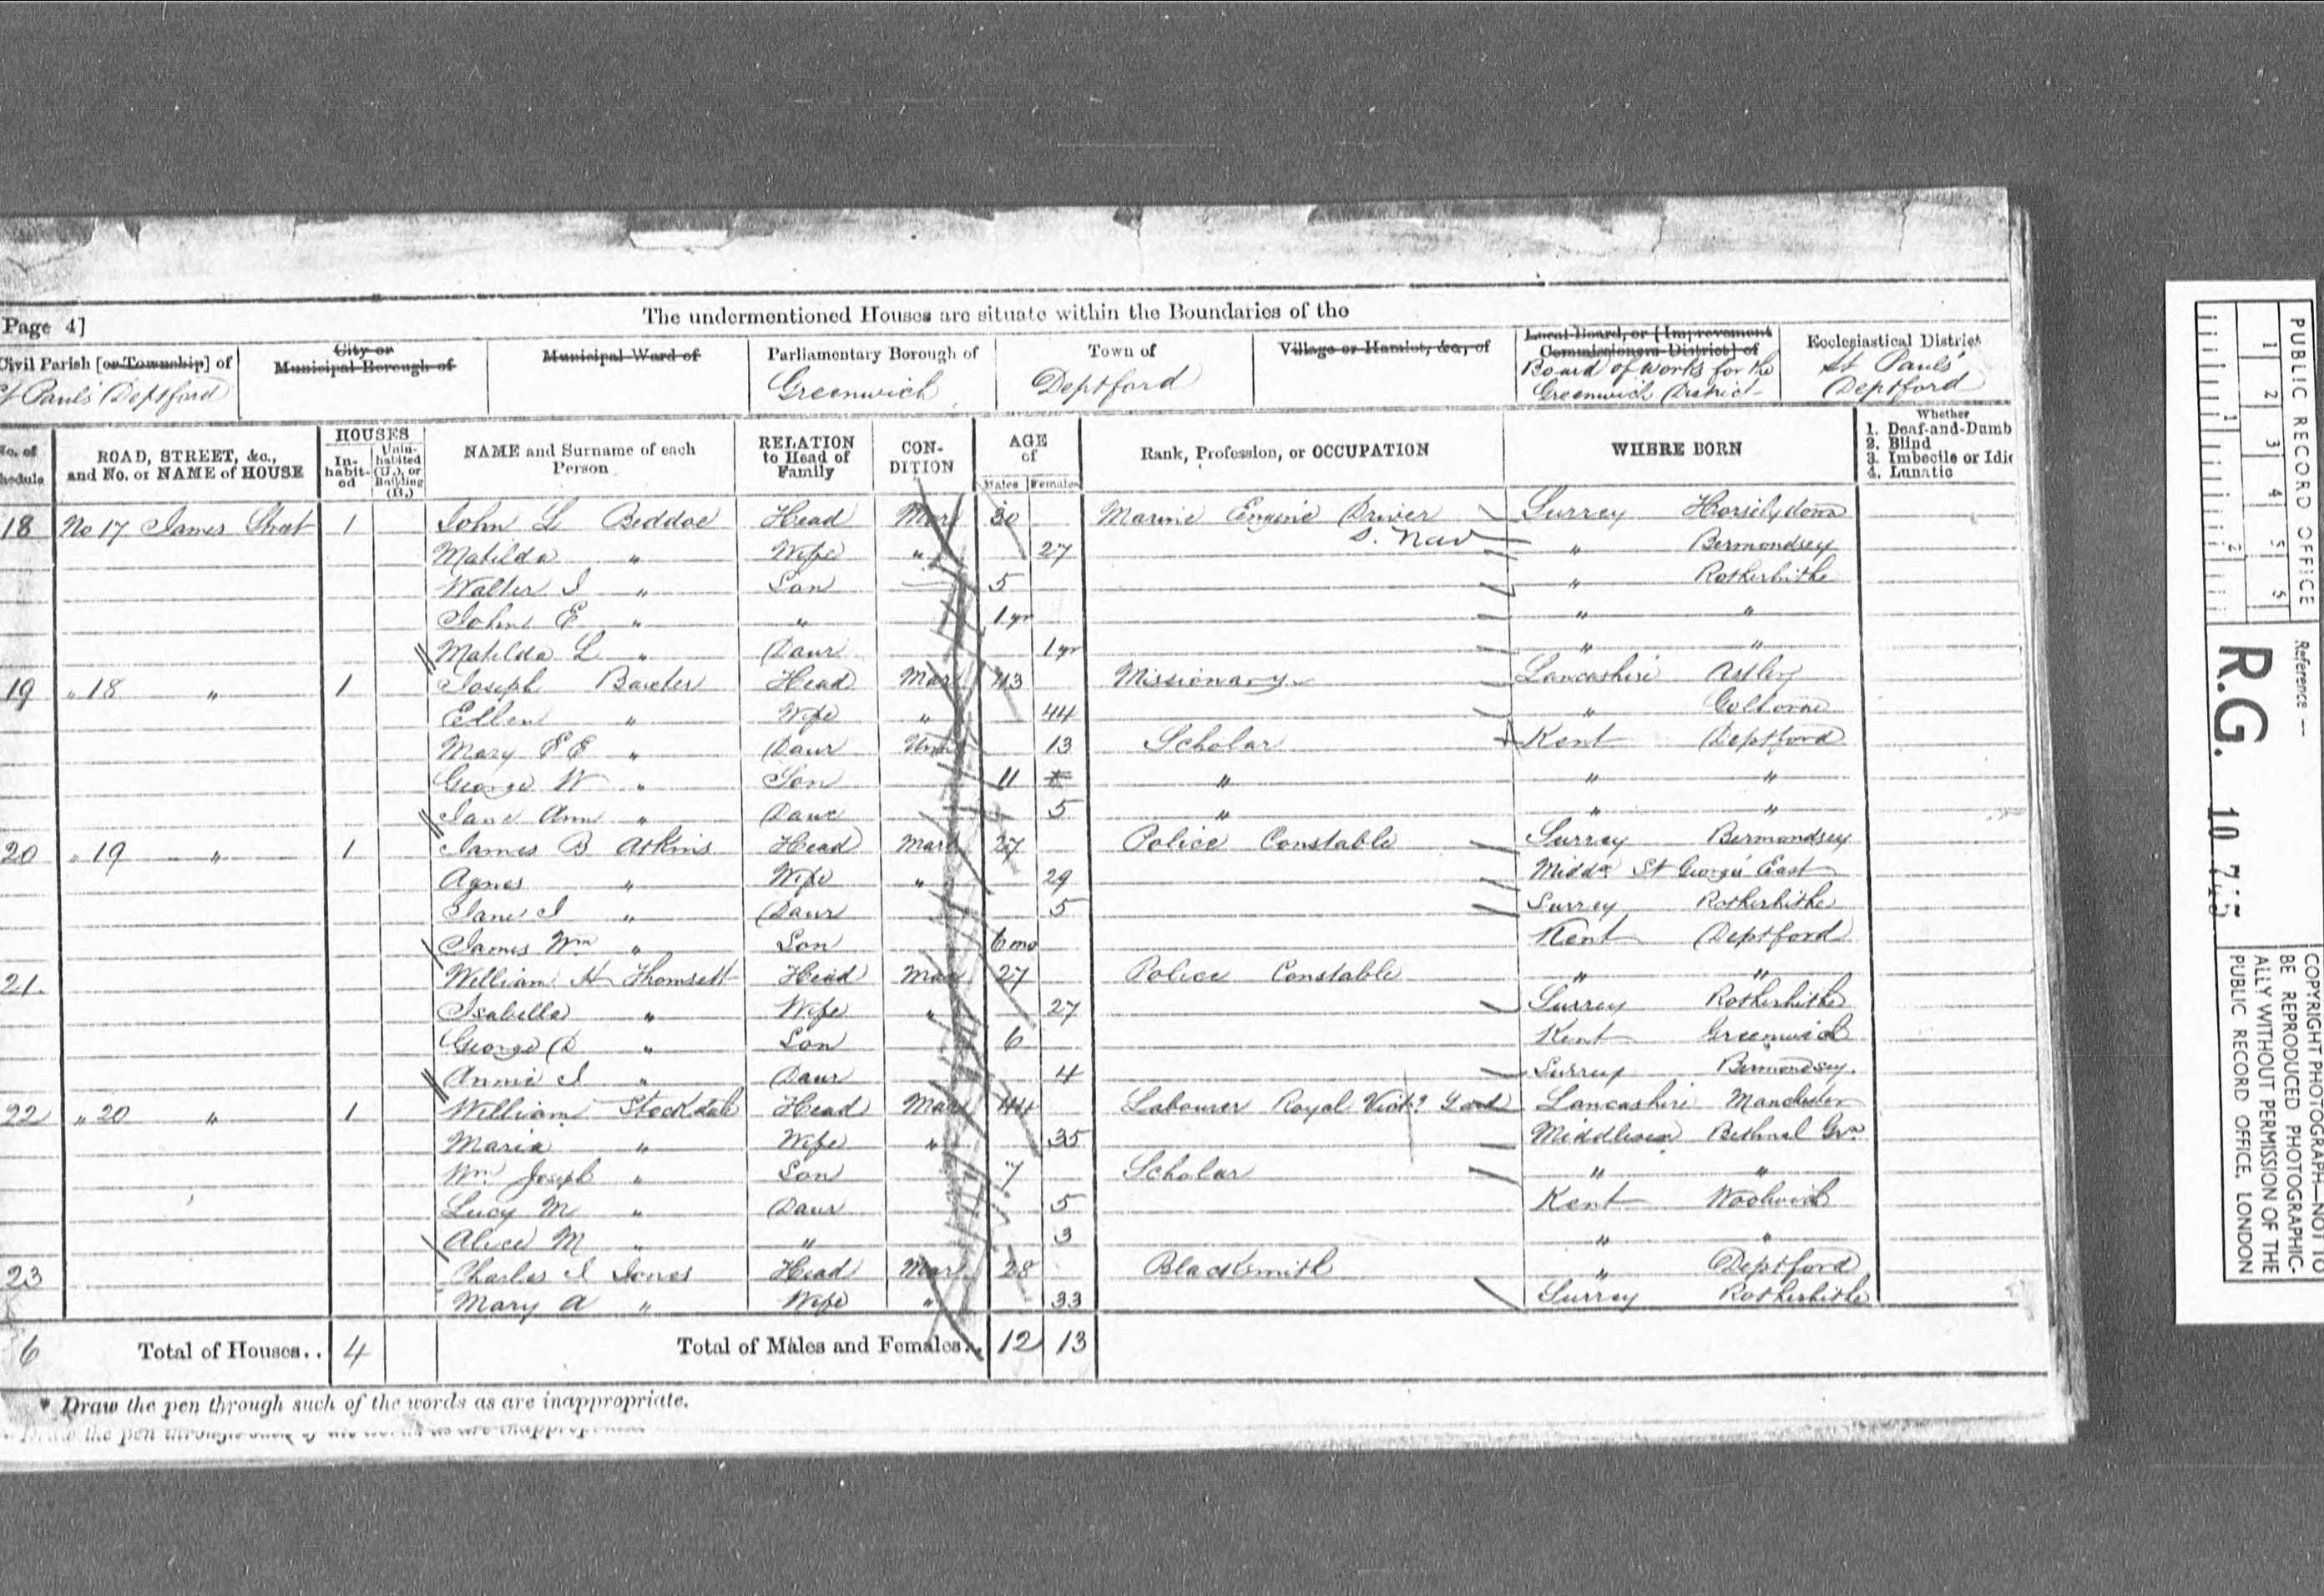 Page 4]
The undermentioned Houses are situate within the Boundaries of the
Civil Parish [or Township] of
St Pauls Deptford
City or
Municipal Borough of
Municipal Ward of
Parliamentary Borough of
Greenwich
Town of
Deptford
Village or Hamlet, &c., of
Local Board, or [Improvement
Commissioners District] of
Board of Works for the
Greenwich District
Ecclesiastical District
St Pauls'
Deptford
No. of
Schedule
ROAD, STREET, &c.,
and No. or NAME of HOUSE
HOUSES
In-
habit-
ed
Unin-
habited
(U.), or
Building
(B.)
NAME and Surname of each
Person
RELATION
to Head of
Family
CON-
DITION
AGE
of
Males Females
Rank, Profession, or OCCUPATION
WHERE BORN
Whether
1. Deaf-and-Dumb
2. Blind
3. Imbecile or Idio
4. Lunatic
18 No 17 James Street 1 John L Beddoe Head Mar 30 Marine Engine Driver Surrey Horselydown
S. Nav
Matilda " Wife " 27 " Bermondsey
Walter J " Son 5 " Rotherhithe
John E " " 1 yr " "
Matilda L " Daur 1 yr " "
19 " 18 " 1 Joseph Baxter Head Mar 43 Missionary Lancashire Astley
Ellen " Wife " 44 " Golborne
Mary E E " Daur Unm 13 Scholar Kent Deptford
George W " Son 11 " " "
Jane Ann " Daur 5 " " "
20 " 19 " 1 James B Atkins Head Mar 27 Police Constable Surrey Bermondsey
Agnes " Wife " 29 Middx St George East
Jane J " Daur 5 Surrey Rotherhithe
James Wm " Son 6 mo Kent Deptford
21. William H Thomsett Head Mar 27 Police Constable " "
Isabella " Wife " 27 Surrey Rotherhithe
George D " Son 6 Kent Greenwich
Annie J " Daur 4 Surrey Bermondsey.
22 " 20 " 1 William Stockdale Head Mar 44 Labourer Royal Vict. Yard Lancashire Manchester
Maria " Wife " 35 Middlesex Bethnal Grn
Wm Joseph " Son 7 Scholar " "
Lucy M " Daur 5 Kent Woolwich
Alice M " " 3 " "
23 Charles J Jones Head Mar 28 Blacksmith " Deptford
Mary A " Wife " 33 Surrey Rotherhithe
6 Total of Houses.. 4 Total of Males and Females.. 12 13
* Draw the pen through such of the words as are inappropriate.
PUBLIC RECORD OFFICE
1 2 3 4 5
1 2
Reference :—
R.G. 10
COPYRIGHT PHOTOGRAPH—NOT TO
BE REPRODUCED PHOTOGRAPHIC-
ALLY WITHOUT PERMISSION OF THE
PUBLIC RECORD OFFICE, LONDON